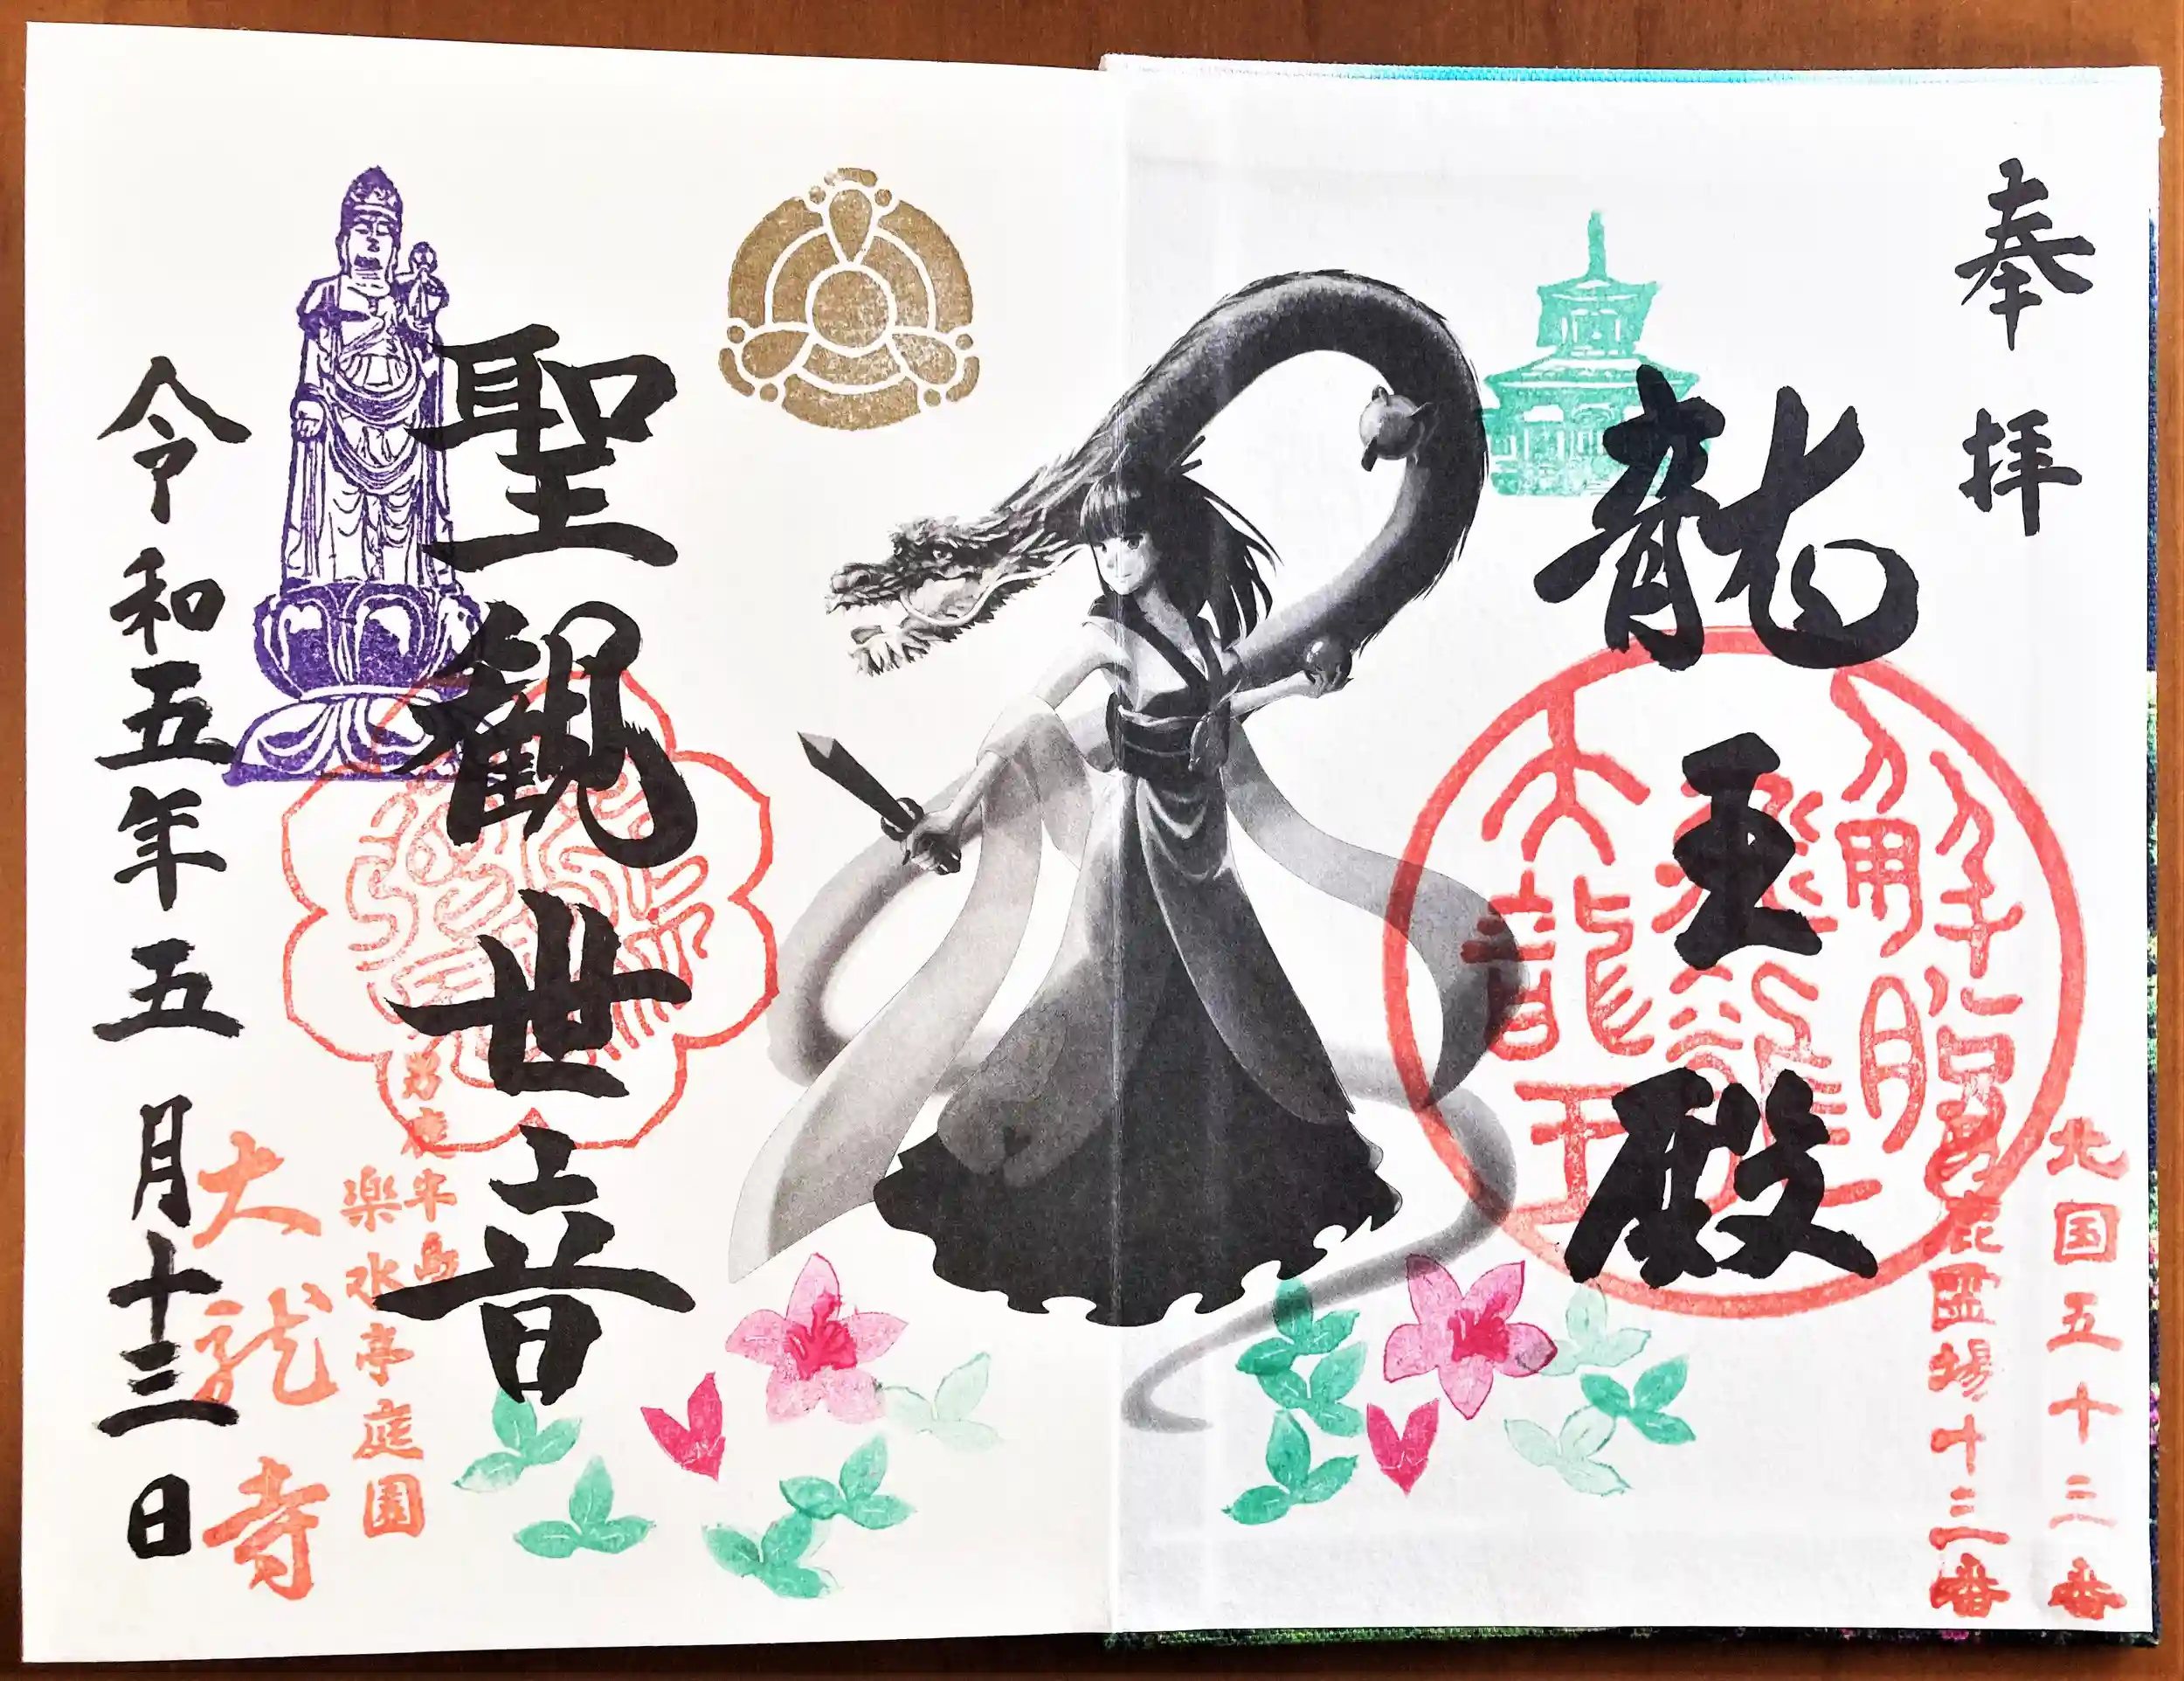 奉拝
北国五十三番
男鹿霊場十三番
龍王殿
大龍王
聖観世音
男鹿半島
楽水亭庭園
大龍寺
令和五年五月十三日